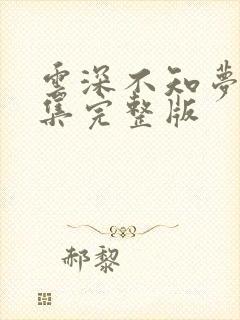 雲深不知夢
集完整版
郝黎